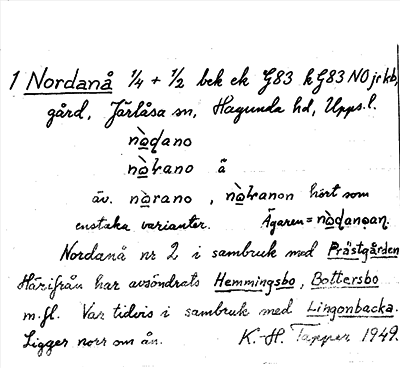 1 Nordanå 1/4 + 1/2 bek ek G83 k G83 NO jrkb,
gård, Järlåsa sn, Hagunda hd, Upps. l.
nòḍano
nòrano ä
äv. nòrano, nòranon hört som
enstaka varianter. Ägaren = nòḍanoaṇ.
Nordanå nr 2 i sambruk med Prästgården
Härifrån har avsöndrats Hemmingsbo, Bottersbo
m.fl. Var tidvis i sambruk med Lingonbacka.
Ligger norr om ån. K.-H. Tapper 1949.